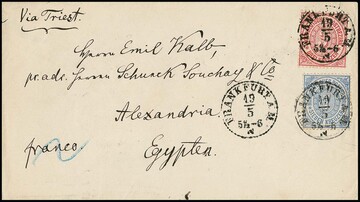 Via Triest.
Herrn Emil Kalb,
pr. adr. Herren Schunck Souchay & Co
Alexandria.
Egypten.
franco.
FRANKFURT A.M.
19
5
5½-6
N
FRANKFURT A.M.
19
5
5½-6
N
FRANKFURT A.M.
19
5
5½-6
N